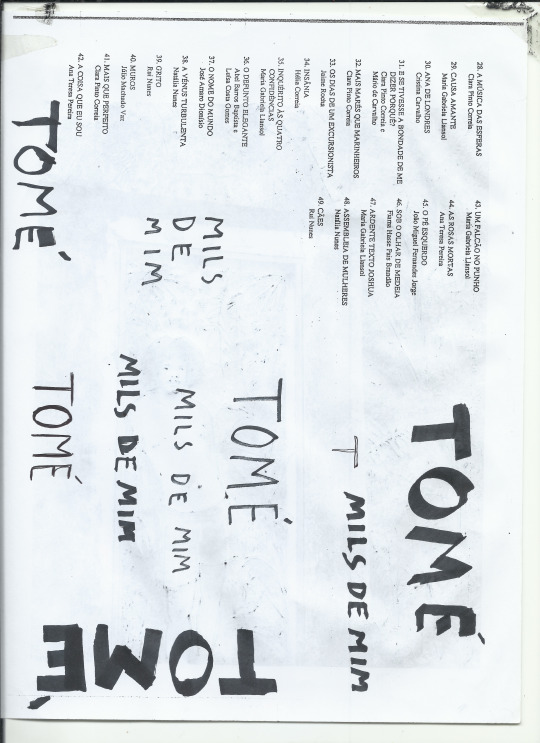 28. A MÚSICA DAS ESFERAS
Clara Pinto Correia
29. CAUSA AMANTE
Maria Gabriela Llansol
30. ANA DE LONDRES
Cristina Carvalho
31. E SE TIVESSE A BONDADE DE ME
DIZER PORQUÊ?
Clara Pinto Correia e
Mário de Carvalho
32. MAIS MARÉS QUE MARINHEIROS
Clara Pinto Correia
33. OS DIAS DE UM EXCURSIONISTA
Jaime Rocha
34. INSÂNIA
Hélia Correia
35. INQUÉRITO ÀS QUATRO
CONFIDÊNCIAS
Maria Gabriela Llansol
36. O DEFUNTO ELEGANTE
Abel Barros Baptista e
Luísa Costa Gomes
37. O NOME DO MUNDO
José Amaro Dionísio
38. A VÉNUS TURBULENTA
Natália Nunes
39. GRITO
Rui Nunes
40. MUROS
Júlio Machado Vaz
41. MAIS QUE PERFEITO
Clara Pinto Correia
42. A COISA QUE EU SOU
Ana Teresa Pereira
43. UM FALCÃO NO PUNHO
Maria Gabriela Llansol
44. AS ROSAS MORTAS
Ana Teresa Pereira
45. O PÉ ESQUERDO
João Miguel Fernandes Jorge
46. SOB O OLHAR DE MEDEIA
Fiama Hasse Pais Brandão
47. ARDENTE TEXTO JOSHUA
Maria Gabriela Llansol
48. ASSEMBLEIA DE MULHERES
Natália Nunes
49. CÃES
Rui Nunes
TOMÉ
T
MILS DE MIM
TOMÉ
MILS
DE
MIM
MILS DE MIM
MILS DE MIM
TOMÉ
TOMÉ
TOMÉ